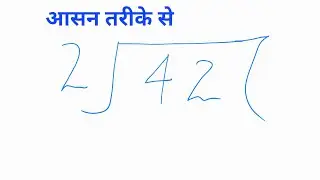 आसन तरीके से
2√42(